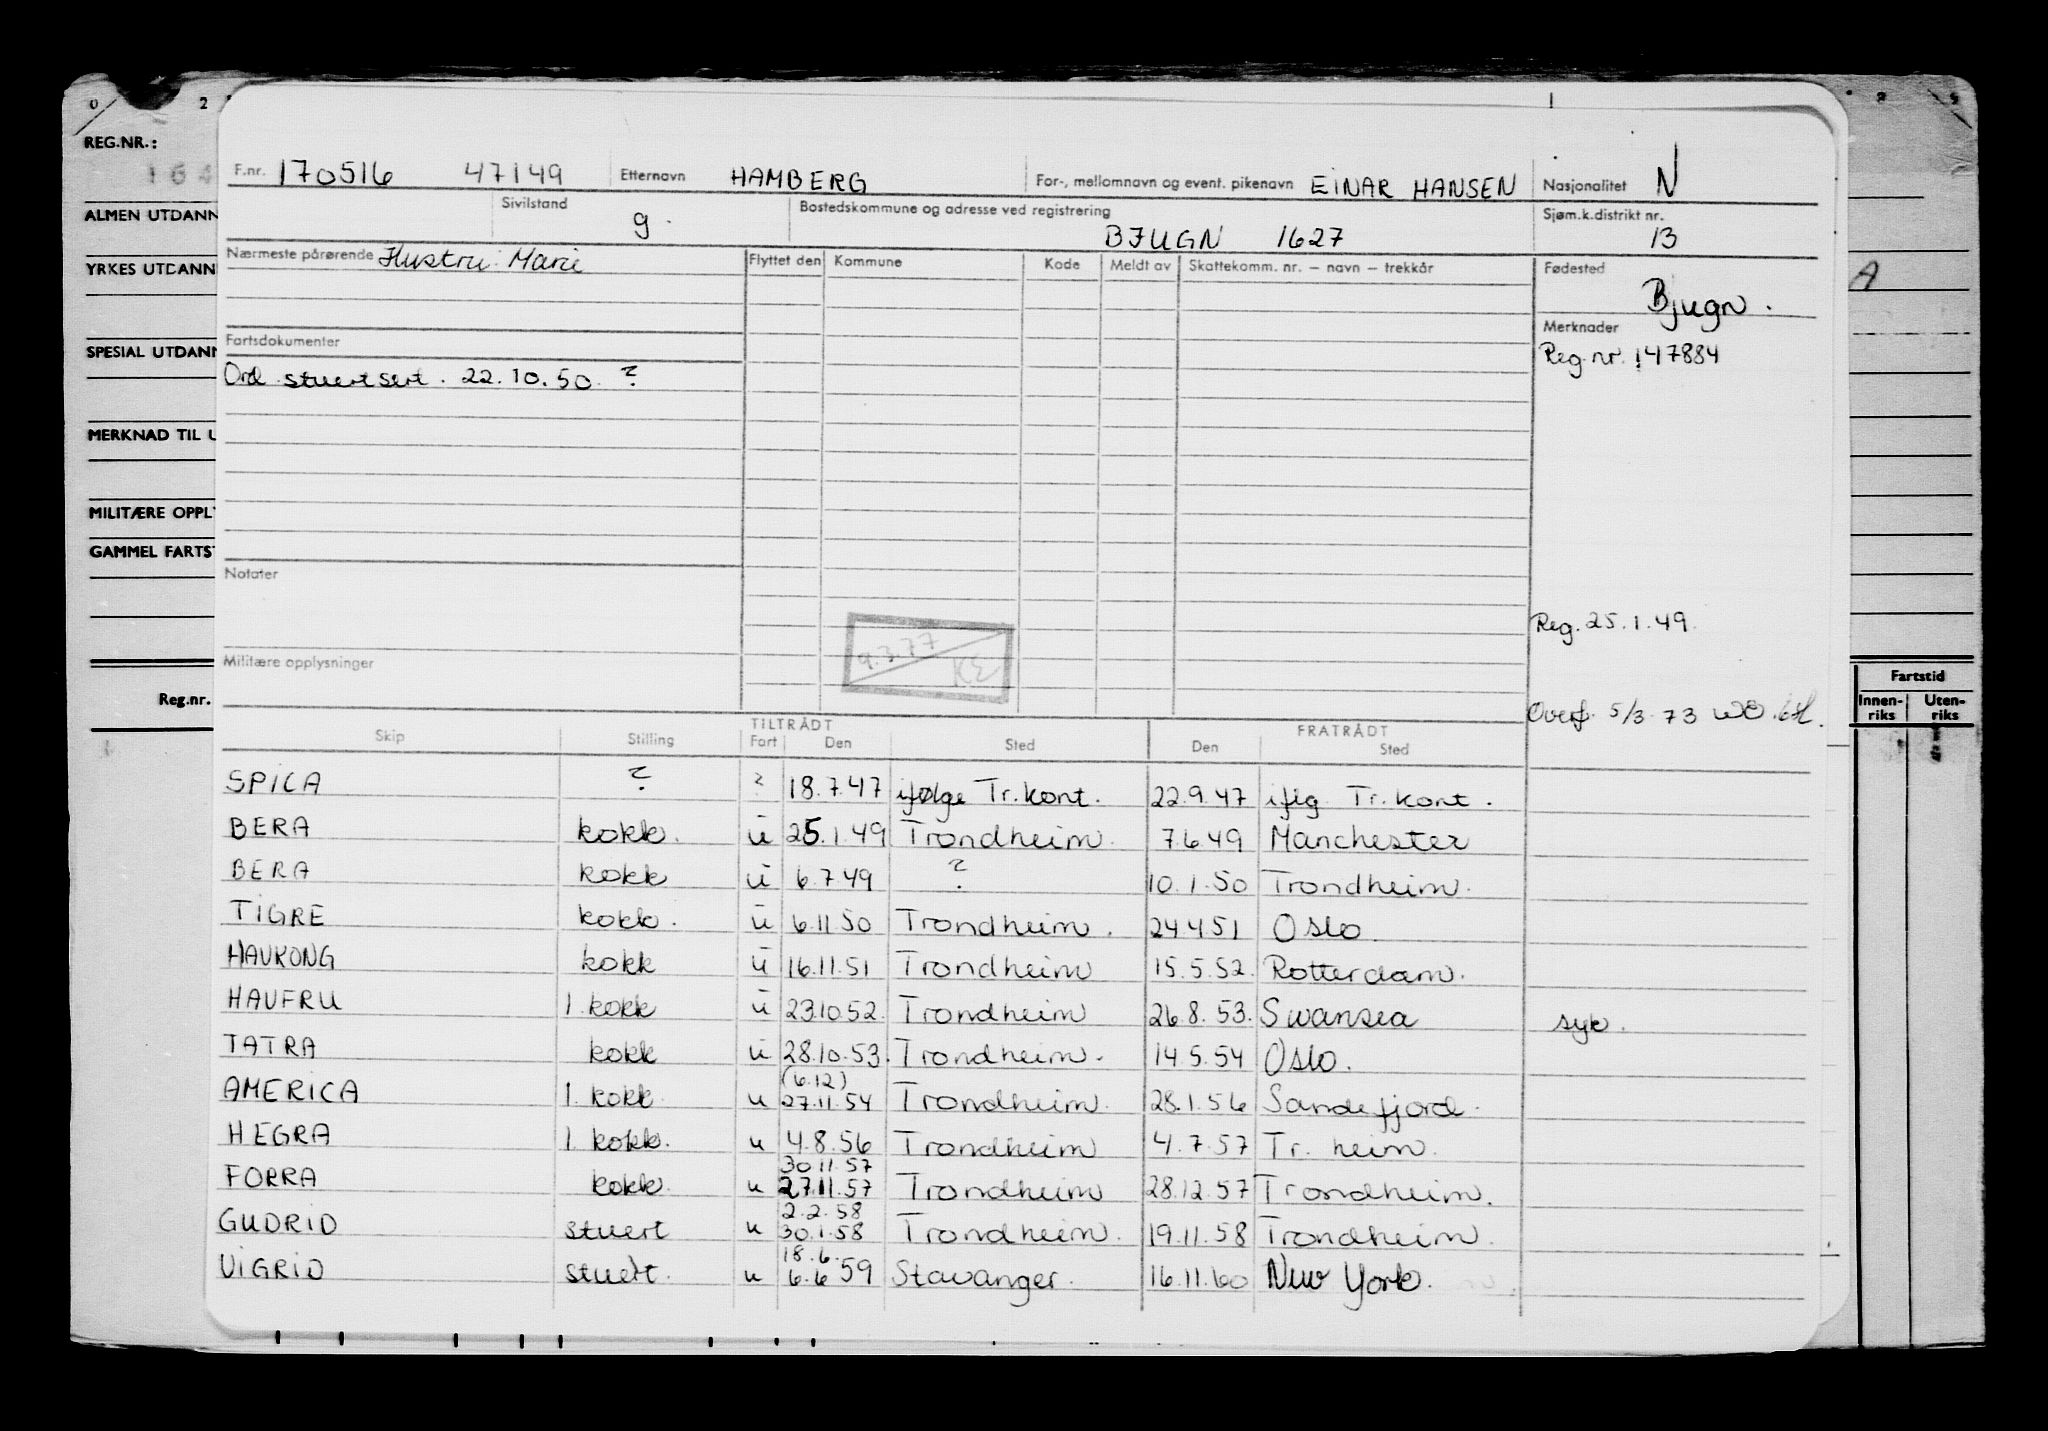 0 2
REG.NR.:
F.nr. 170516 47149 Etternavn HAMBERG For-, mellomnavn og event. pikenavn EINAR HANSEN Nasjonalitet N
ALMEN UTDANN Sivilstand g. Bostedskommune og adresse ved registrering BJUGN 1627 Sjøm.k.distrikt nr. 13
YRKES UTDANN Nærmeste pårørende Hustru: Marie Flyttet den Kommune Kode Meldt av Skattekomm. nr. – navn – trekkår Fødested
Bjugn.
SPESIAL UTDANN Fartsdokumenter Merknader
Ord. stuertsert. 22.10.50 ? Reg.nr. 147884
MERKNAD TIL U
MILITÆRE OPPL
GAMMEL FARTS
Notater
Reg. 25.1.49.
9.3.77 KE
Militære opplysninger
Fartstid
Reg.nr. Overf. 5/3.73 Innen-riks Uten-riks
TILTRÅDT FRATRÅDT
Skip Stilling Fart Den Sted Den Sted
SPICA ? ? 18.7.47 ifølge Tr.kont. 22.9.47 iflg Tr.kont.
BERA kokk. u 25.1.49 Trondheim. 7.6.49 Manchester
BERA kokk u 6.7.49 ? 10.1.50 Trondheim.
TIGRE kokk. u 6.11.50 Trondheim. 24.4.51 Oslo
HAVKONG kokk u 16.11.51 Trondheim 15.5.52. Rotterdam.
HAVFRU 1. kokk u 23.10.52. Trondheim 26.8.53. Swansea syk.
TATRA kokk u 28.10.53. Trondheim. 14.5.54 Oslo.
(6.12)
AMERICA 1. kokk. u 27.11.54 Trondheim. 28.1.56 Sandefjord.
HEGRA 1. kokk. u 4.8.56 Trondheim 4.7.57 Tr. heim.
30.11.57
FORRA kokk. u 27.11.57 Trondheim 28.12.57 Trondheim.
2.2.58
GUDRID stuert u 30.1.58 Trondheim. 19.11.58 Trondheim.
18.6.
VIGRID stuert. u 6.6 59 Stavanger. 16.11.60 New York.